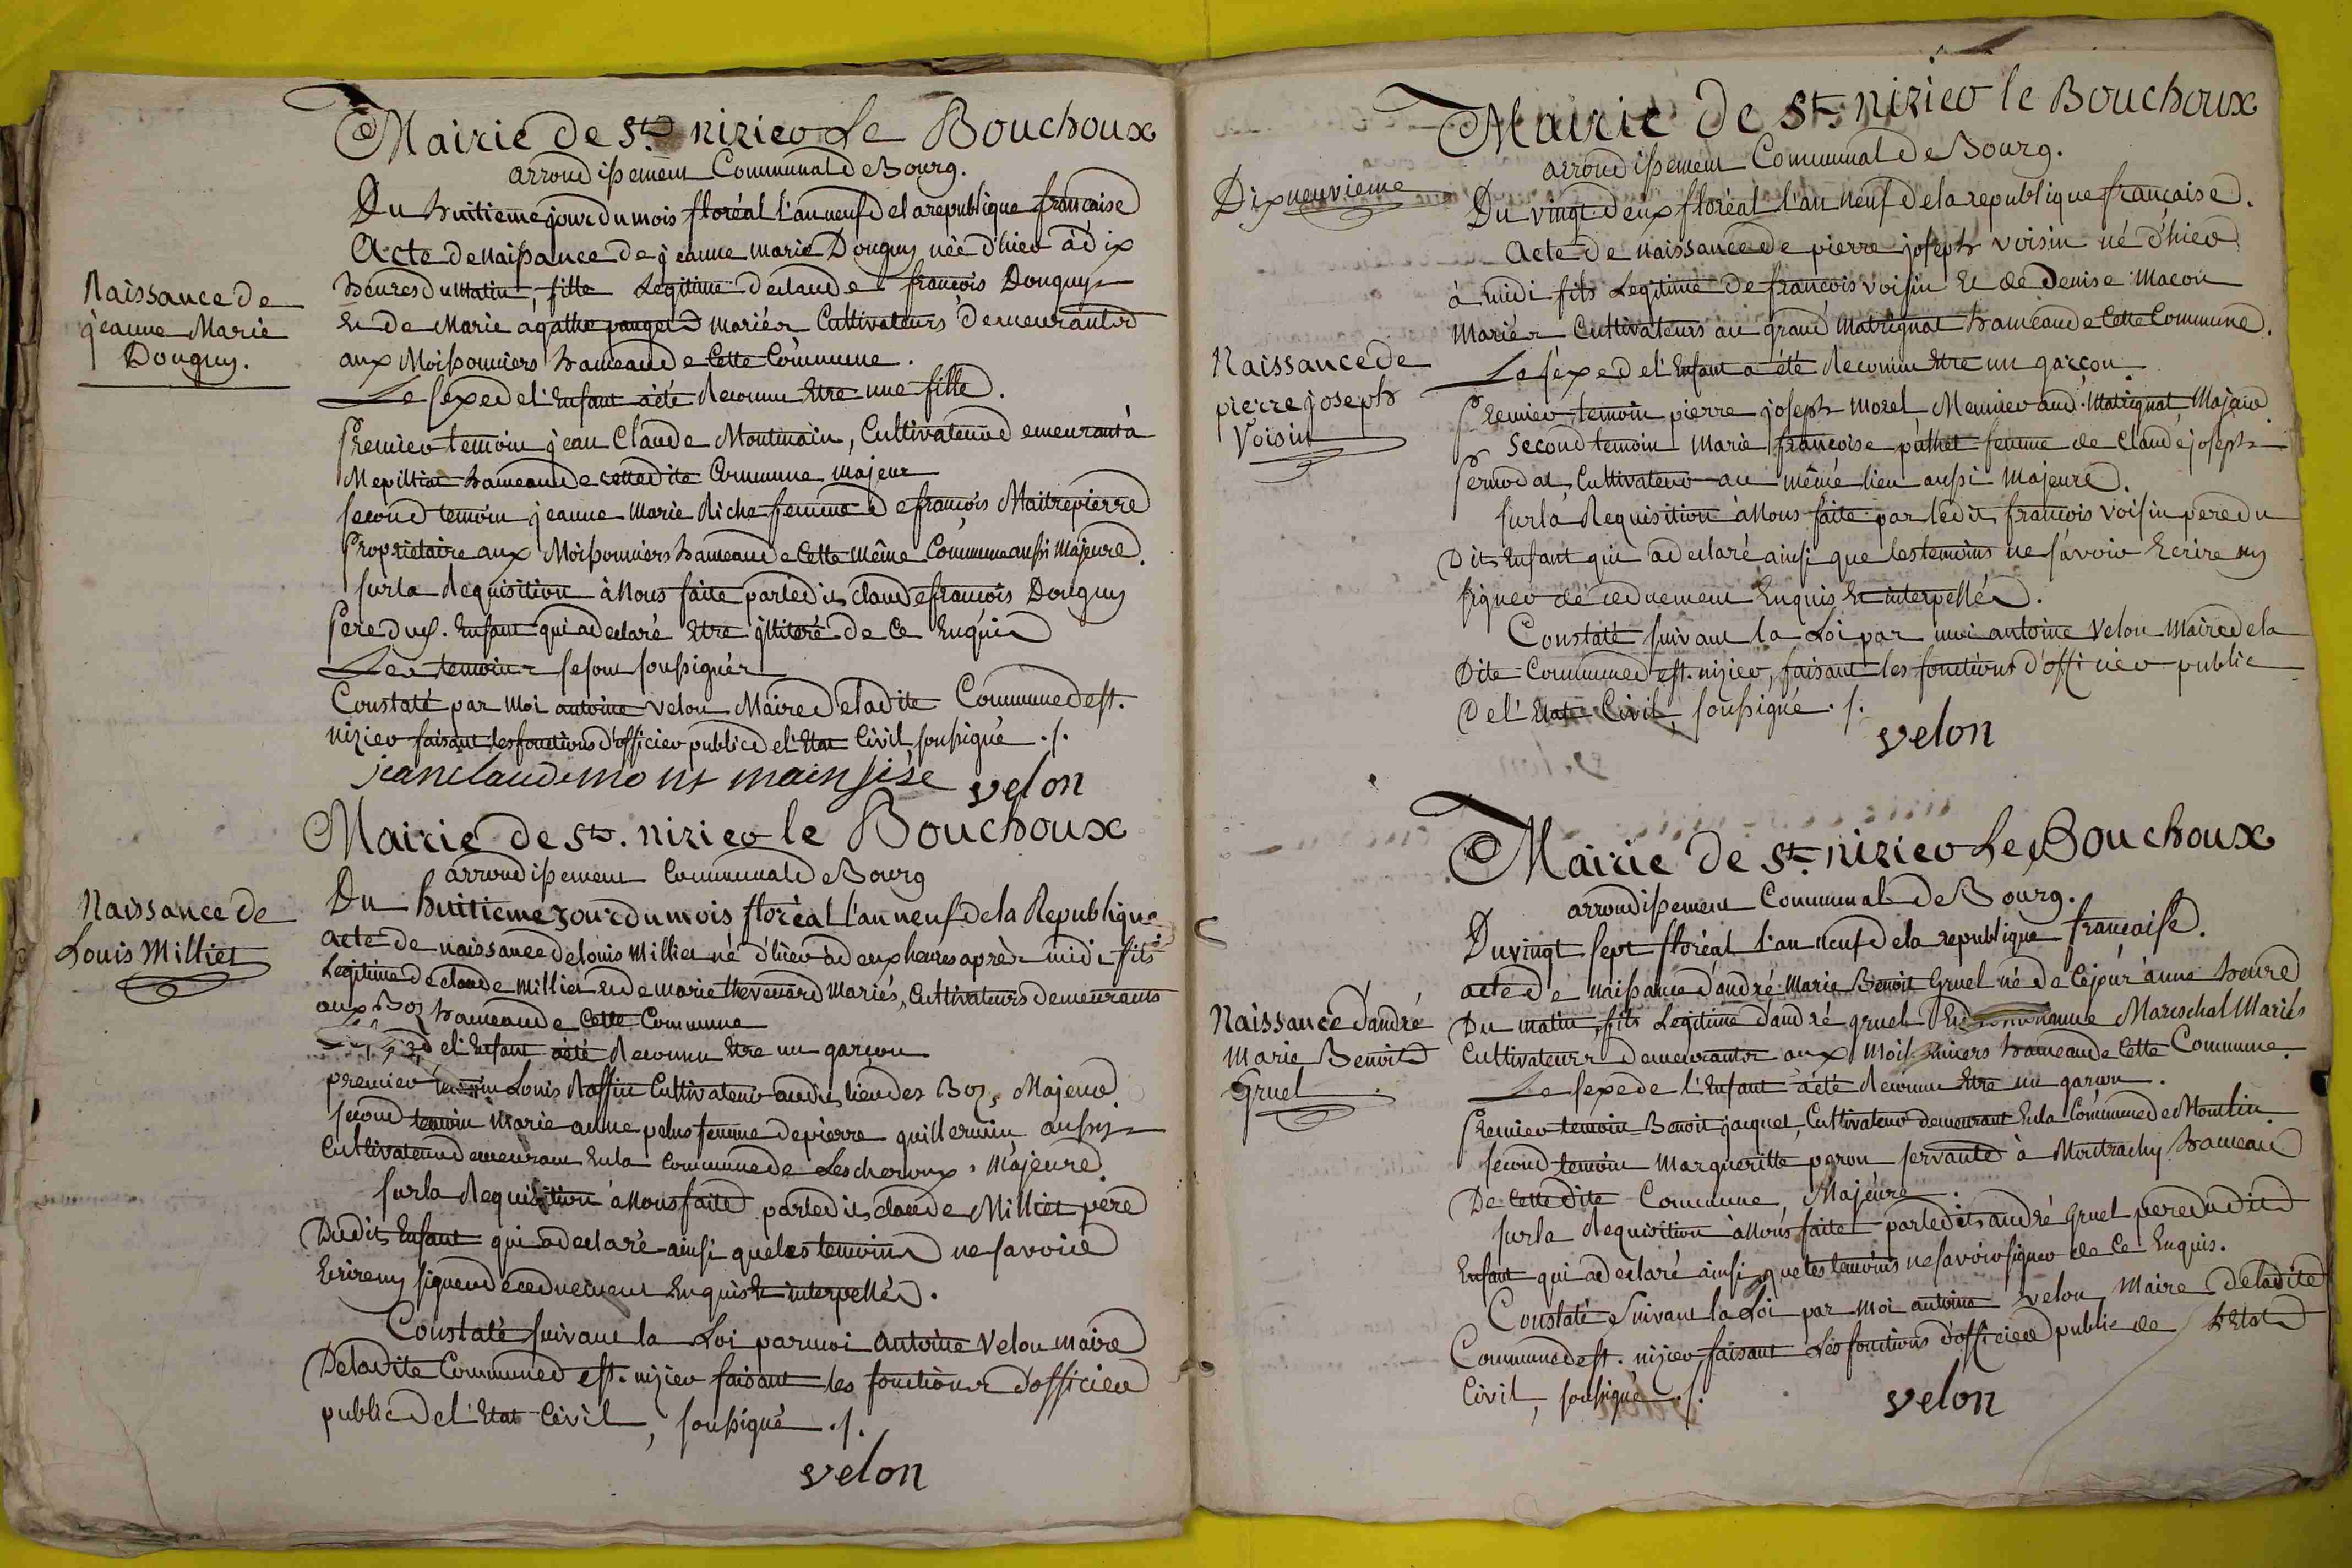 Mairie de St. nizier Le Bouchoux
arrondissement Communal de Bourg.
Du huitieme jour du mois floréal l'an neuf de la republique française
Acte de naissance de jeanne marie Douguy née d'hier à dix
heures du matin, fille Legitime de claude françois Douguy
Et de Marie agathe mariés Cultivateurs demeurants
aux Moissonniers hameau de Cette Commune.
Le sexe de l'Enfant a été Reconnu Etre une fille.
Premier temoin jean Claude Montmain, Cultivateur demeurant à
Mepilliat hameau de cettedite Commune majeur
second temoin jeanne Marie Riche femme de françois Maitrepierre
Propriétaire aux Moissonniers hameau de Cette même Commune aussi Majeure.
sur la Requisition à Nous faite par ledit claude françois Douguy
Pere dud. Enfant qui a declaré Etre illiteré de Ce Enquis
Les temoins se sont soussignés
Constaté par Moi antoine velon Maire de ladite Commune de st.
nizier faisant les fonctions d'officier public de l'Etat Civil soussigné ./.
jean claude mont main
velon
Naissance de
jeanne Marie
Douguy.
Mairie de St. nizier le Bouchoux
arrondissement Communal de Bourg
Du huitieme jour du mois floréal l'an neuf de la Republique
acte de naissance de louis Milliet né d'hier à deux heures après midi fils
Legitime de claude Milliet Et de marie thevenard Mariés, Cultivateurs demeurants
aux Boz hameau de Cette Commune
de l'Enfant a été Reconnu Etre un garçon
premier temoin Louis Raffin Cultivateur audit lieu des Boz, Majeur.
second temoin Marie anne pelus femme de pierre guillermin aussy
Cultivateur demeurant En la Commune de Lescheroux, Majeure.
sur la Requisition à Nous faite par ledit claude Milliet pere
Dudit Enfant qui a declaré ainsi que les temoins ne savoir
Ecrire ny signer de ce duement Enquis Et interpellés.
Constaté suivant la Loi par moi Antoine Velon maire
De ladite Commune de st. nizier faisant les fonctions d'officier
public de l'Etat Civil, soussigné ./.
velon
Naissance de
Louis Milliet
Dix neuvieme
Mairie de St. nizier le Bouchoux
arrondissement Communal de Bourg.
Du vingt deux floréal l'an neuf de la republique française.
Acte de naissance de pierre joseph voisin né d'hier
à midi fils Legitime de françois voisin Et de Denise Macon
Mariés Cultivateurs au grand Matrignat hameau de Cette Commune.
Le sexe de l'Enfant a été Reconnu Etre un garçon
Premier temoin pierre joseph Morel Meunier aud. Matrignat Majeur
Second temoin Marie françoise puthet femme de Claude joseph
Pernodat Cultivateur au même lieu aussi Majeure.
sur la Requisition à Nous faite par ledit françois voisin pere du
Dit Enfant qui a declaré ainsi que les temoins ne savoir Ecrire ny
signer de ce duement Enquis Et interpellés.
Constaté suivant la Loi par moi antoine Velon Maire de la
Dite Commune de st. nizier, faisant les fonctions d'officier public
De l'Etat Civil, soussigné ./.
velon
Naissance de
pierre joseph
Voisin
Mairie de St. nizier Le Bouchoux
arrondissement Communal de Bourg.
Du vingt sept floréal l'an neuf de la republique française.
acte de naissance d'andré Marie Benoit Gruel né de Cejour à une heure
Du matin, fils Legitime d'andré gruel Mareschal Mariés
Cultivateurs demeurants aux Moissonniers hameau de Cette Commune.
Le sexe de l'Enfant a été Reconnu Etre un garçon.
Premier temoin Benoit jacquet, Cultivateur demeurant En la Commune de Montlin
second temoin Margueritte peron servante à Montrachy hameau
De Cettedite Commune, Majeure.
sur la Requisition à Nous faite par ledit andré Gruel pere dudit
Enfant qui a declaré ainsi que les temoins ne savoir signer de Ce Enquis.
Constaté Suivant la Loi par Moi antoine velon Maire de ladite
Commune de st. nizier, faisant Les fonctions d'officier public de L'Etat
Civil, soussigné ./.
velon
Naissance d'andré
Marie Benoit
Gruel